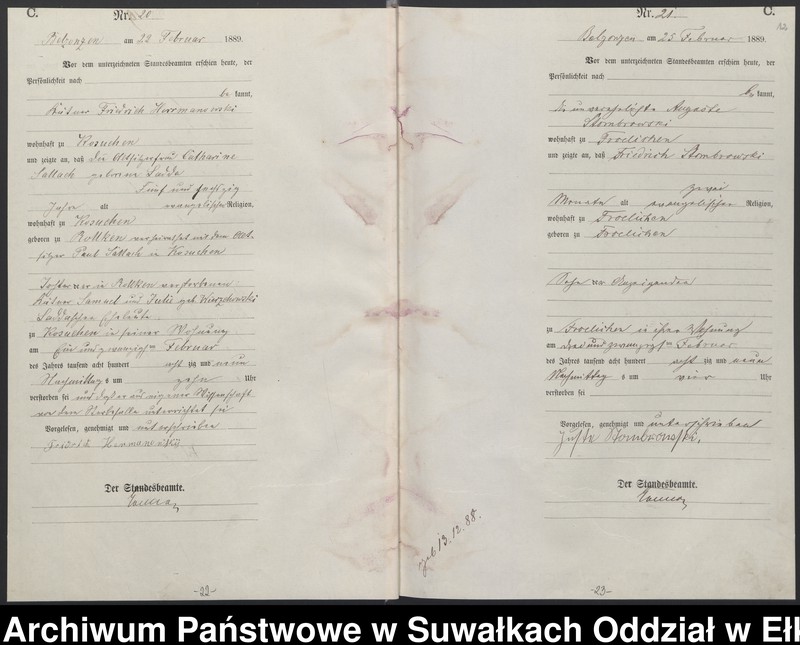 C.
Nr. 20
am 22 Februar 1889.
Vor dem unterzeichneten Standesbeamten erschien heute, der
Persönlichkeit nach
be kannt,
Kätner Friedrich Herrmanowski
wohnhaft zu Kosuchen
und zeigte an, daß die Altsitzerfrau Catharine
Sallach geborene Sadda
Fünf und sechszig
Jahr alt evangelischer Religion,
wohnhaft zu Kosuchen
geboren zu Rollken verheirathet mit dem Alt-
sitzer Paul Sallach in Kosuchen
Tochter der in Rollken verstorbenen
Kätner Samuel und Julie geb
Eheleute
zu Kosuchen in seiner Wohnung
am Ein und zwanzigsten Februar
des Jahres tausend acht hundert acht zig und neun
Nachmittags um zehn Uhr
verstorben sei und daß er aus eigener Wissenschaft
von dem Sterbefalle unterrichtet sei
Vorgelesen, genehmigt und unterschrieben
Der Standesbeamte.
-22-
Nr. 21
C.
am 25 Februar 1889.
Vor dem unterzeichneten Standesbeamten erschien heute, der
Persönlichkeit nach
be kannt,
die unverehelichte Auguste
Stombrowski
wohnhaft zu Froelichen
und zeigte an, daß Friedrich Stombrowski
zwei
Monate alt evangelischer Religion,
wohnhaft zu Froelichen
geboren zu Froelichen
Sohn der Anzeigenden
zu Froelichen in ihrer Wohnung
am drei und zwanzigsten Februar
des Jahres tausend acht hundert acht zig und neun
Nachmittag s um vier Uhr
verstorben sei
Vorgelesen, genehmigt und unterschrieben
Stombrowski.
Der Standesbeamte.
geb 13.12.88.
-23-
Archiwum Państwowe w Suwałkach Oddział w Ełk